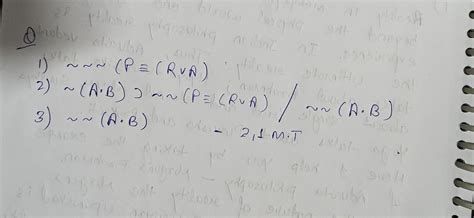 ①
1) ~~~ (P ≡ (R∨A)
2) ~(A·B) ⊃ ~~ (P ≡ (R∨A) / ~~(A·B)
3) ~~(A·B) – 2,1 M.T